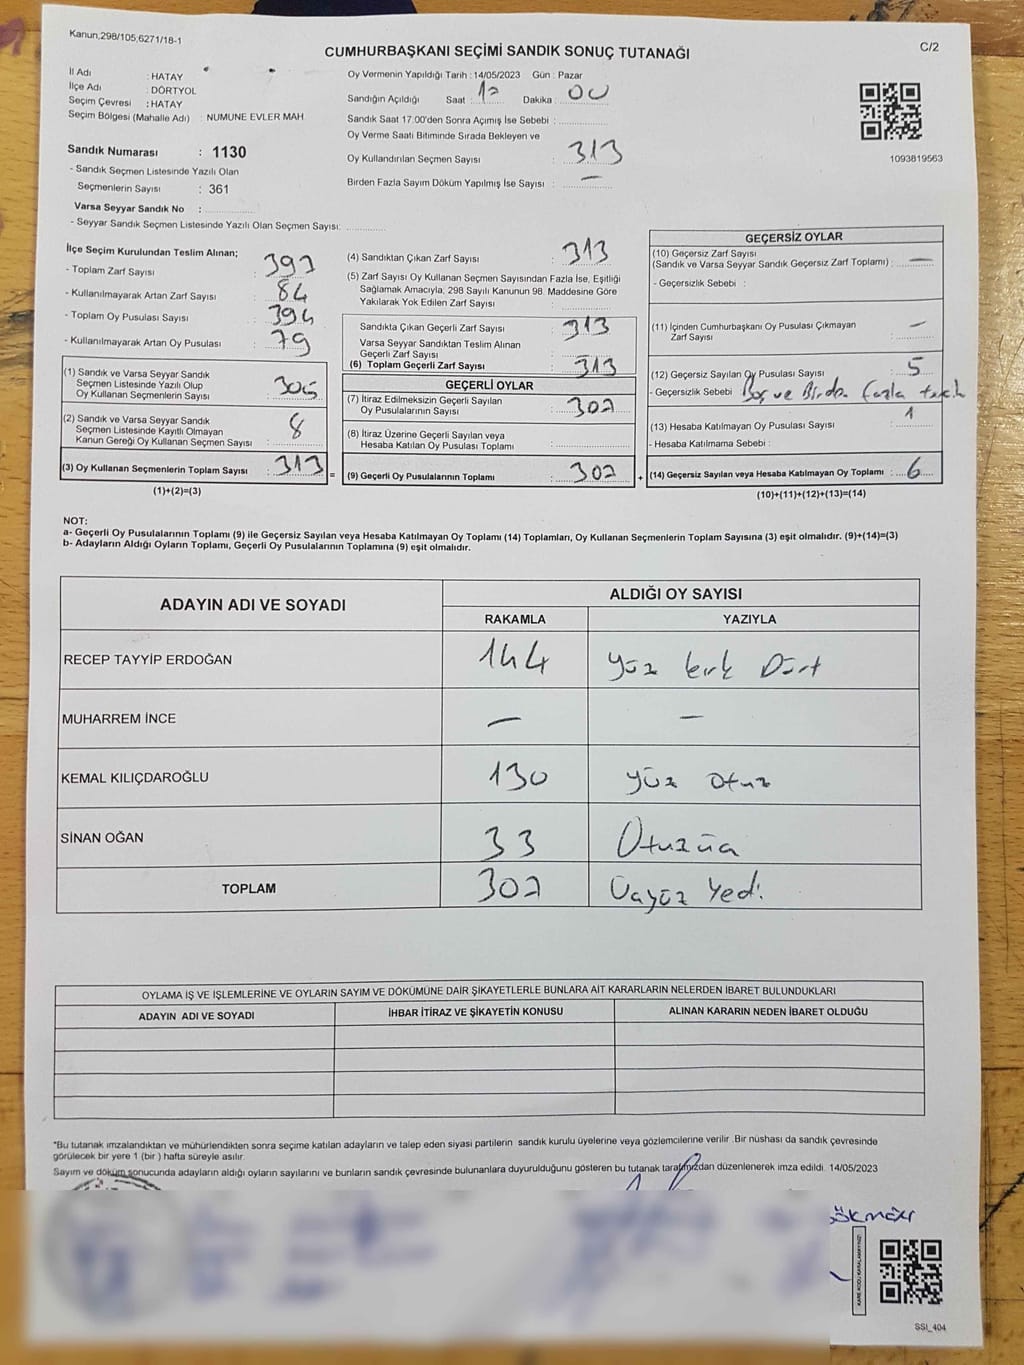 Kanun,298/105,6271/18-1
C/2
CUMHURBAŞKANI SEÇİMİ SANDIK SONUÇ TUTANAĞI
İl Adı : HATAY
İlçe Adı : DÖRTYOL
Seçim Çevresi : HATAY
Seçim Bölgesi (Mahalle Adı) : NUMUNE EVLER MAH.
Sandık Numarası : 1130
- Sandık Seçmen Listesinde Yazılı Olan
Seçmenlerin Sayısı : 361
Varsa Seyyar Sandık No :
- Seyyar Sandık Seçmen Listesinde Yazılı Olan Seçmen Sayısı:
Oy Vermenin Yapıldığı Tarih : 14/05/2023 Gün : Pazar
Sandığın Açıldığı Saat : 17 Dakika : 00
Sandık Saat 17.00'den Sonra Açımış İse Sebebi :
Oy Verme Saati Bitiminde Sırada Bekleyen ve
Oy Kullandırılan Seçmen Sayısı : 313
Birden Fazla Sayım Döküm Yapılmış İse Sayısı : —
1093819563
İlçe Seçim Kurulundan Teslim Alınan;
- Toplam Zarf Sayısı : 397
- Kullanılmayarak Artan Zarf Sayısı : 84
- Toplam Oy Pusulası Sayısı : 394
- Kullanılmayarak Artan Oy Pusulası : 79
(1) Sandık ve Varsa Seyyar Sandık
Seçmen Listesinde Yazılı Olup
Oy Kullanan Seçmenlerin Sayısı : 305
(2) Sandık ve Varsa Seyyar Sandık
Seçmen Listesinde Kayıtlı Olmayan
Kanun Gereği Oy Kullanan Seçmen Sayısı : 8
(3) Oy Kullanan Seçmenlerin Toplam Sayısı : 313
(1)+(2)=(3)
(4) Sandıktan Çıkan Zarf Sayısı : 313
(5) Zarf Sayısı Oy Kullanan Seçmen Sayısından Fazla İse, Eşitliği
Sağlamak Amacıyla, 298 Sayılı Kanunun 98. Maddesine Göre
Yakılarak Yok Edilen Zarf Sayısı :
Sandıkta Çıkan Geçerli Zarf Sayısı : 313
Varsa Seyyar Sandıktan Teslim Alınan
Geçerli Zarf Sayısı :
(6) Toplam Geçerli Zarf Sayısı : 313
=
GEÇERLİ OYLAR
(7) İtiraz Edilmeksizin Geçerli Sayılan
Oy Pusulalarının Sayısı : 307
(8) İtiraz Üzerine Geçerli Sayılan veya
Hesaba Katılan Oy Pusulası Toplamı :
(9) Geçerli Oy Pusulalarının Toplamı : 307
+
GEÇERSİZ OYLAR
(10) Geçersiz Zarf Sayısı
(Sandık ve Varsa Seyyar Sandık Geçersiz Zarf Toplamı) : —
- Geçersizlik Sebebi :
(11) İçinden Cumhurbaşkanı Oy Pusulası Çıkmayan
Zarf Sayısı : —
(12) Geçersiz Sayılan Oy Pusulası Sayısı : 5
- Geçersizlik Sebebi : Boş ve Birden fazla tercih
(13) Hesaba Katılmayan Oy Pusulası Sayısı : 1
- Hesaba Katılmama Sebebi :
(14) Geçersiz Sayılan veya Hesaba Katılmayan Oy Toplamı : 6
(10)+(11)+(12)+(13)=(14)
NOT:
a- Geçerli Oy Pusulalarının Toplamı (9) ile Geçersiz Sayılan veya Hesaba Katılmayan Oy Toplamı (14) Toplamları, Oy Kullanan Seçmenlerin Toplam Sayısına (3) eşit olmalıdır. (9)+(14)=(3)
b- Adayların Aldığı Oyların Toplamı, Geçerli Oy Pusulalarının Toplamına (9) eşit olmalıdır.
ADAYIN ADI VE SOYADI
ALDIĞI OY SAYISI
RAKAMLA YAZIYLA
RECEP TAYYİP ERDOĞAN 144 Yüz kırk Dört
MUHARREM İNCE — —
KEMAL KILIÇDAROĞLU 130 Yüz otuz
SİNAN OĞAN 33 Otuzüç
TOPLAM 307 Üçyüz Yedi
OYLAMA İŞ VE İŞLEMLERİNE VE OYLARIN SAYIM VE DÖKÜMÜNE DAİR ŞİKAYETLERLE BUNLARA AİT KARARLARIN NELERDEN İBARET BULUNDUKLARI
ADAYIN ADI VE SOYADI İHBAR İTİRAZ VE ŞİKAYETİN KONUSU ALINAN KARARIN NEDEN İBARET OLDUĞU
*Bu tutanak imzalandıktan ve mühürlendikten sonra seçime katılan adayların ve talep eden siyasi partilerin sandık kurulu üyelerine veya gözlemcilerine verilir .Bir nüshası da sandık çevresinde
görülecek bir yere 1 (bir ) hafta süreyle asılır.
Sayım ve döküm sonucunda adayların aldığı oyların sayılarını ve bunların sandık çevresinde bulunanlara duyurulduğunu gösteren bu tutanak tarafımızdan düzenlenerek imza edildi. 14/05/2023
SSI_404